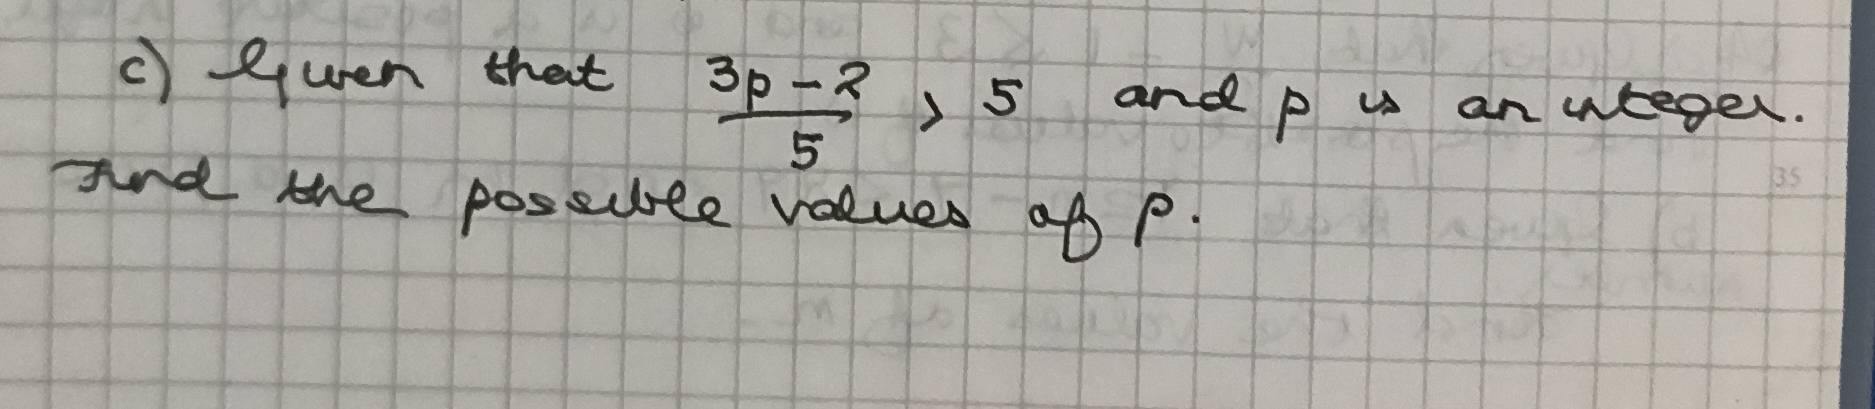 c) Given that 3p-2/5 > 5 and p is an integer.
Find the possible values of p.